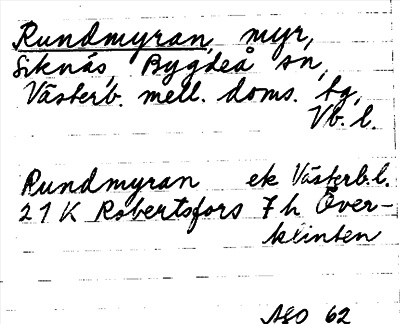 Rundmyran, myr,
Siknäs, Bygdeå sn,
Västerb. mell. doms. tg,
Vb. l.
Rundmyran ek Västerb.l.
21K Robertsfors 7h Över-
klinten
ASO 62